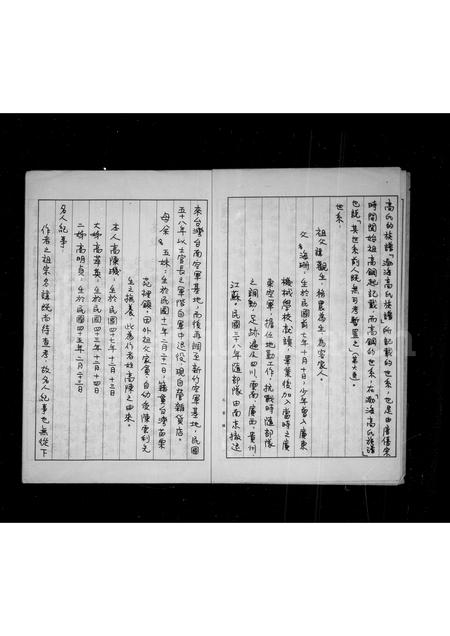 高氏的族譜「渤海高氏族譜」所記載的世系,也是由唐僖宗
時開始祖高鋼起記載,而高鋼的世系,在渤海高氏族譜
也說「其世系前人既無可考暫置之」
世系:
祖父諱觀生,務農為生,為客家人。
父名海珊,生於民國前七年十月十日,少年曾入廣東
機械學校就讀,畢業後加入當時之廣
東空軍,擔任地勤工作,抗戰時隨部隊
之調動,足跡遍及四川,雲南,廣西,貴州
江蘇。民國三十八年隨部隊由南京撤退
來台灣台南空軍基地,而後再調至新竹空軍基地,民國
五十八年以士官長之軍階自軍中退役,現自營雜貨店。
母余名五妹,生於民國十一年二月二十一日,籍貫台灣苗栗
苑裡鎮,因外祖父家貧,自幼受陳雲利先
生之撫養,此為作者姓高陳之由來。
本人高陳璣,生於民國四十七年十二月十三日
大姊高菁英,生於民國四十三年十一月十四日
二姊高明貞,生於民國四十五年二月二十三日
名人紀事
作者之祖宗名諱既尚待查考,故名人紀事也無從下